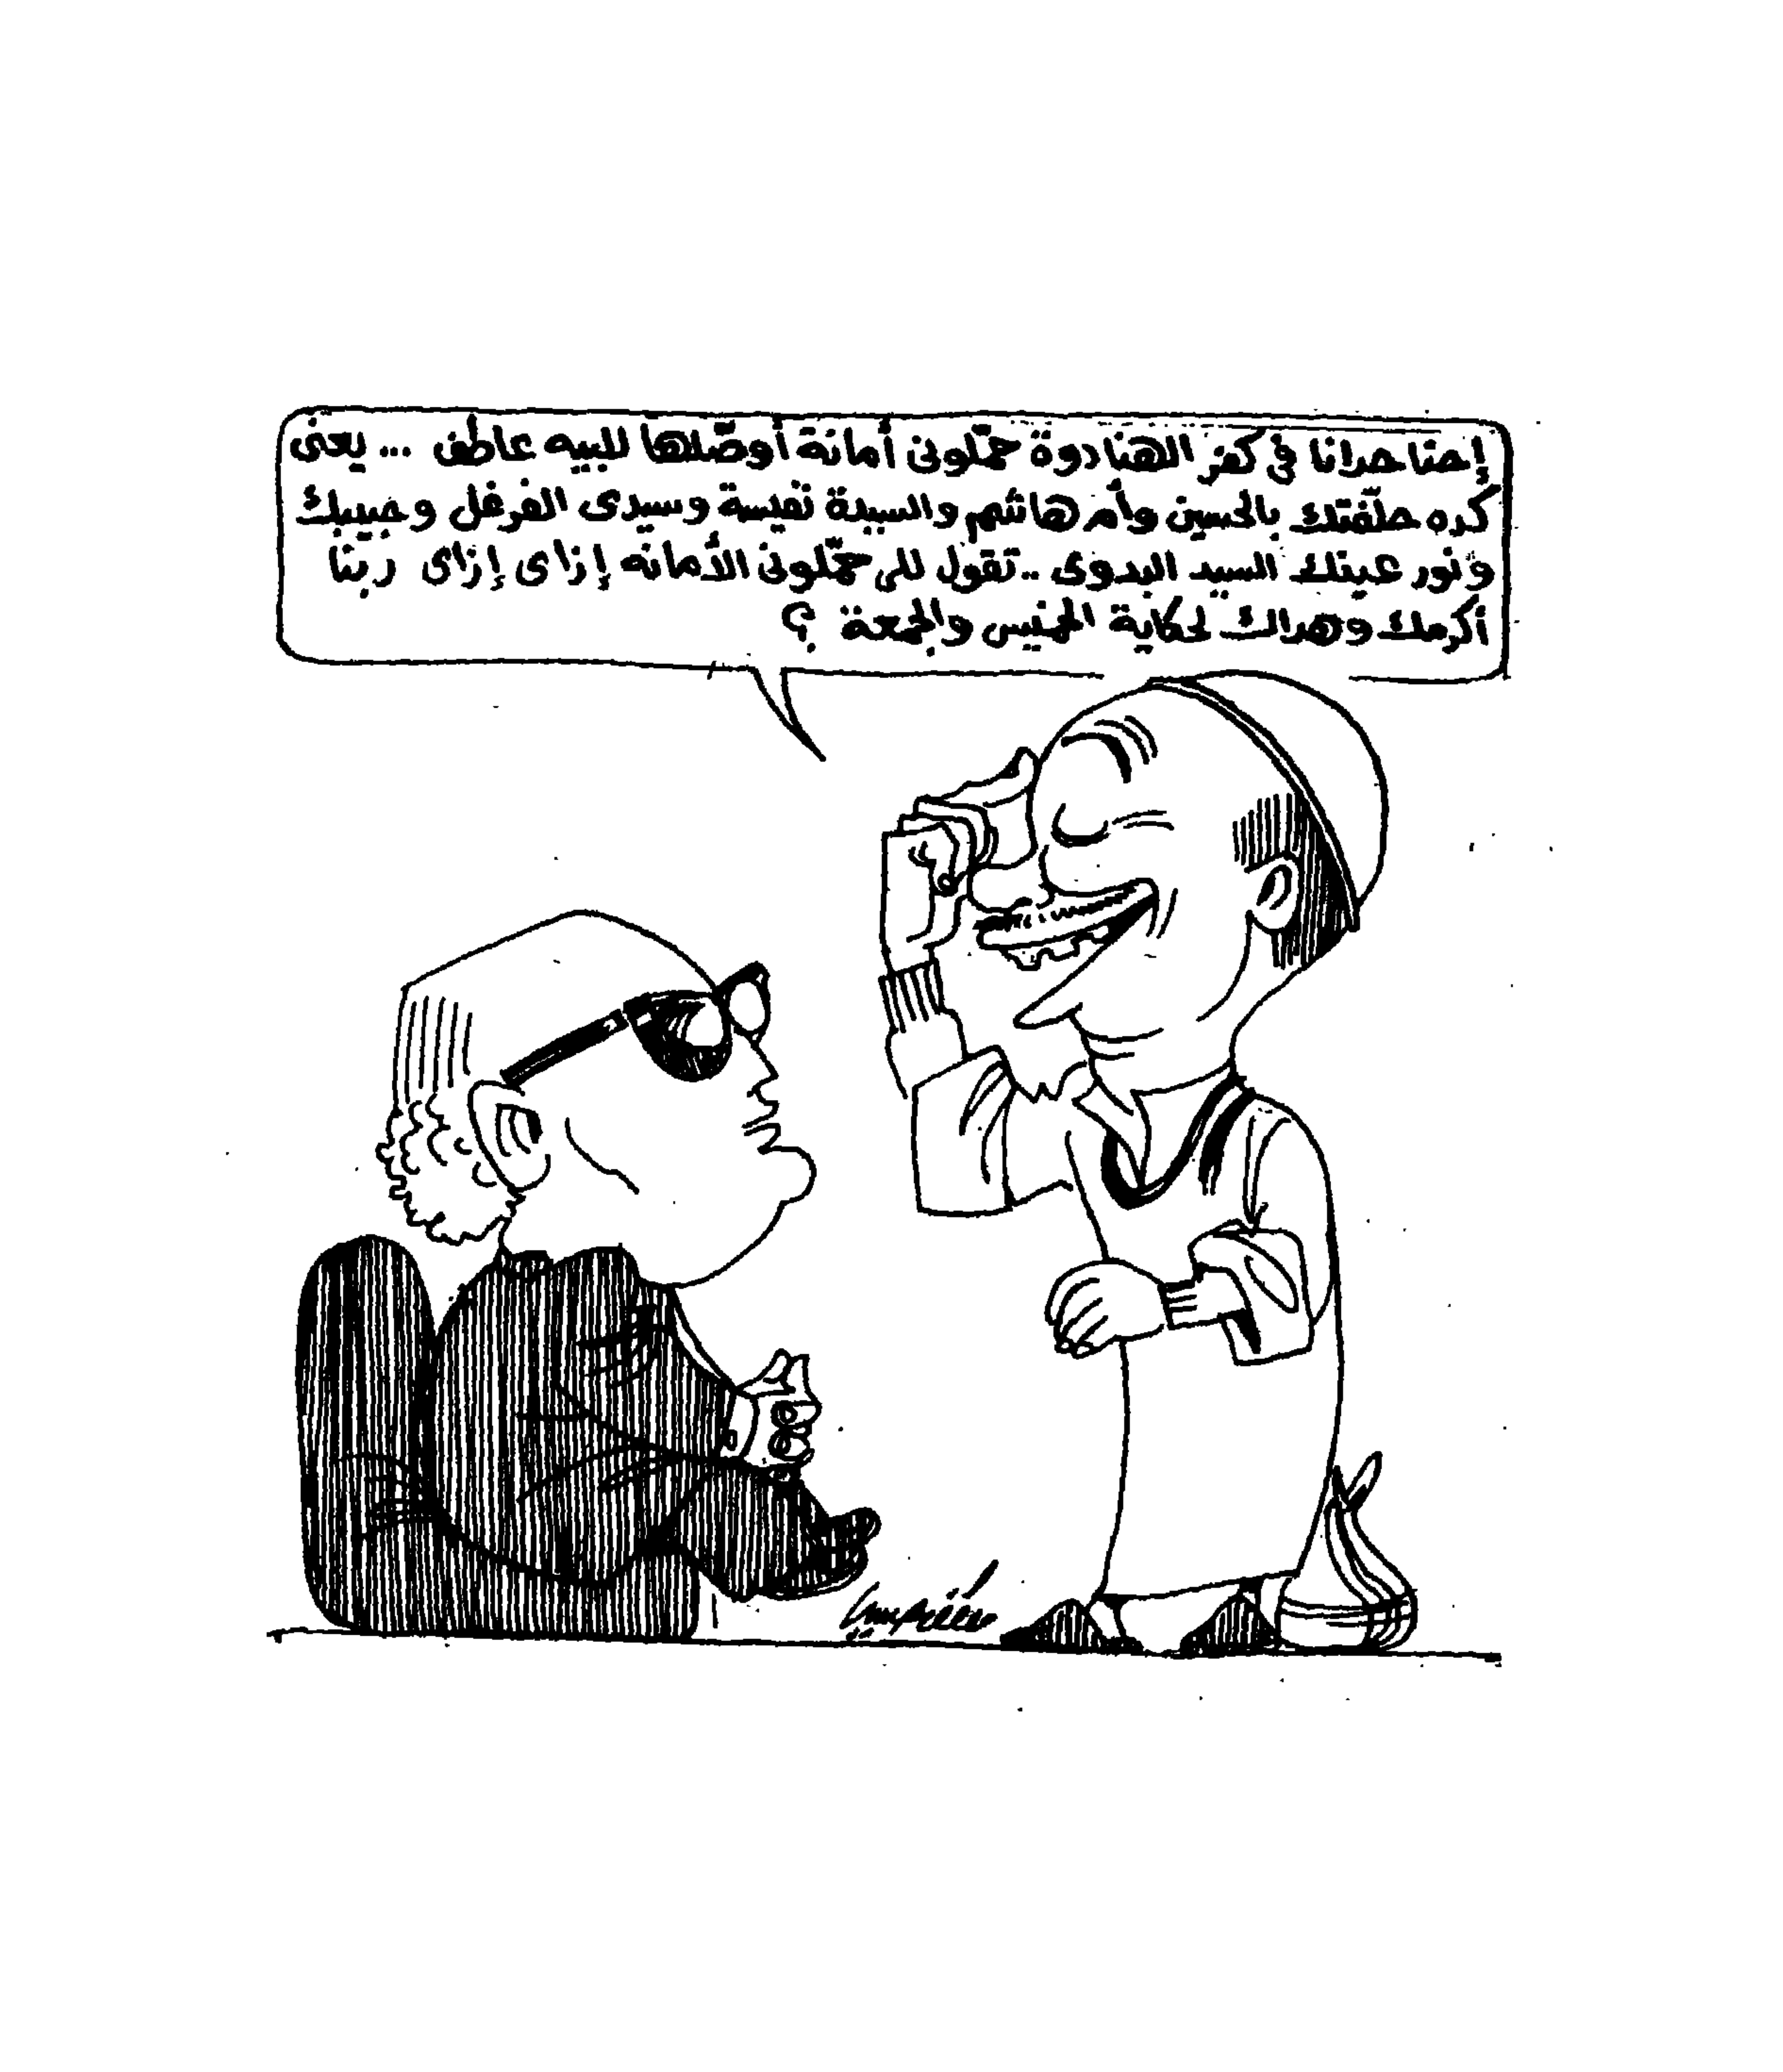 إحنا جرانا فى كفر الهنادوة حمّلونى أمانة أوصّلها للبيه عاطف ... يعنى
كده حلّفتك بالحسين وأم هاشم والسيدة نفيسة وسيدى الفرغل وحبيبك
ونور عينك السيد البدوى .. تقول للى حمّلونى الأمانه إزاى إزاى ربنا
أكرمك وهداك لحكاية الخميس والجمعة ؟